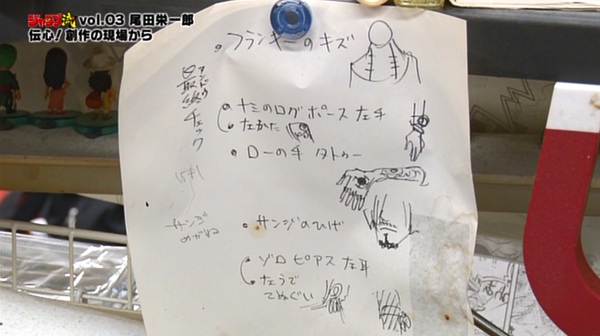 ジャンプ流 vol.03 尾田栄一郎
伝心！創作の現場から
・フランキーのキズ
最終チェック
・ナミのログポース 左手
左かた
・ローの手 タトゥー
サンジ
めがね
・サンジのひげ
・ゾロ ピアス 左耳
左うで
てぬぐい